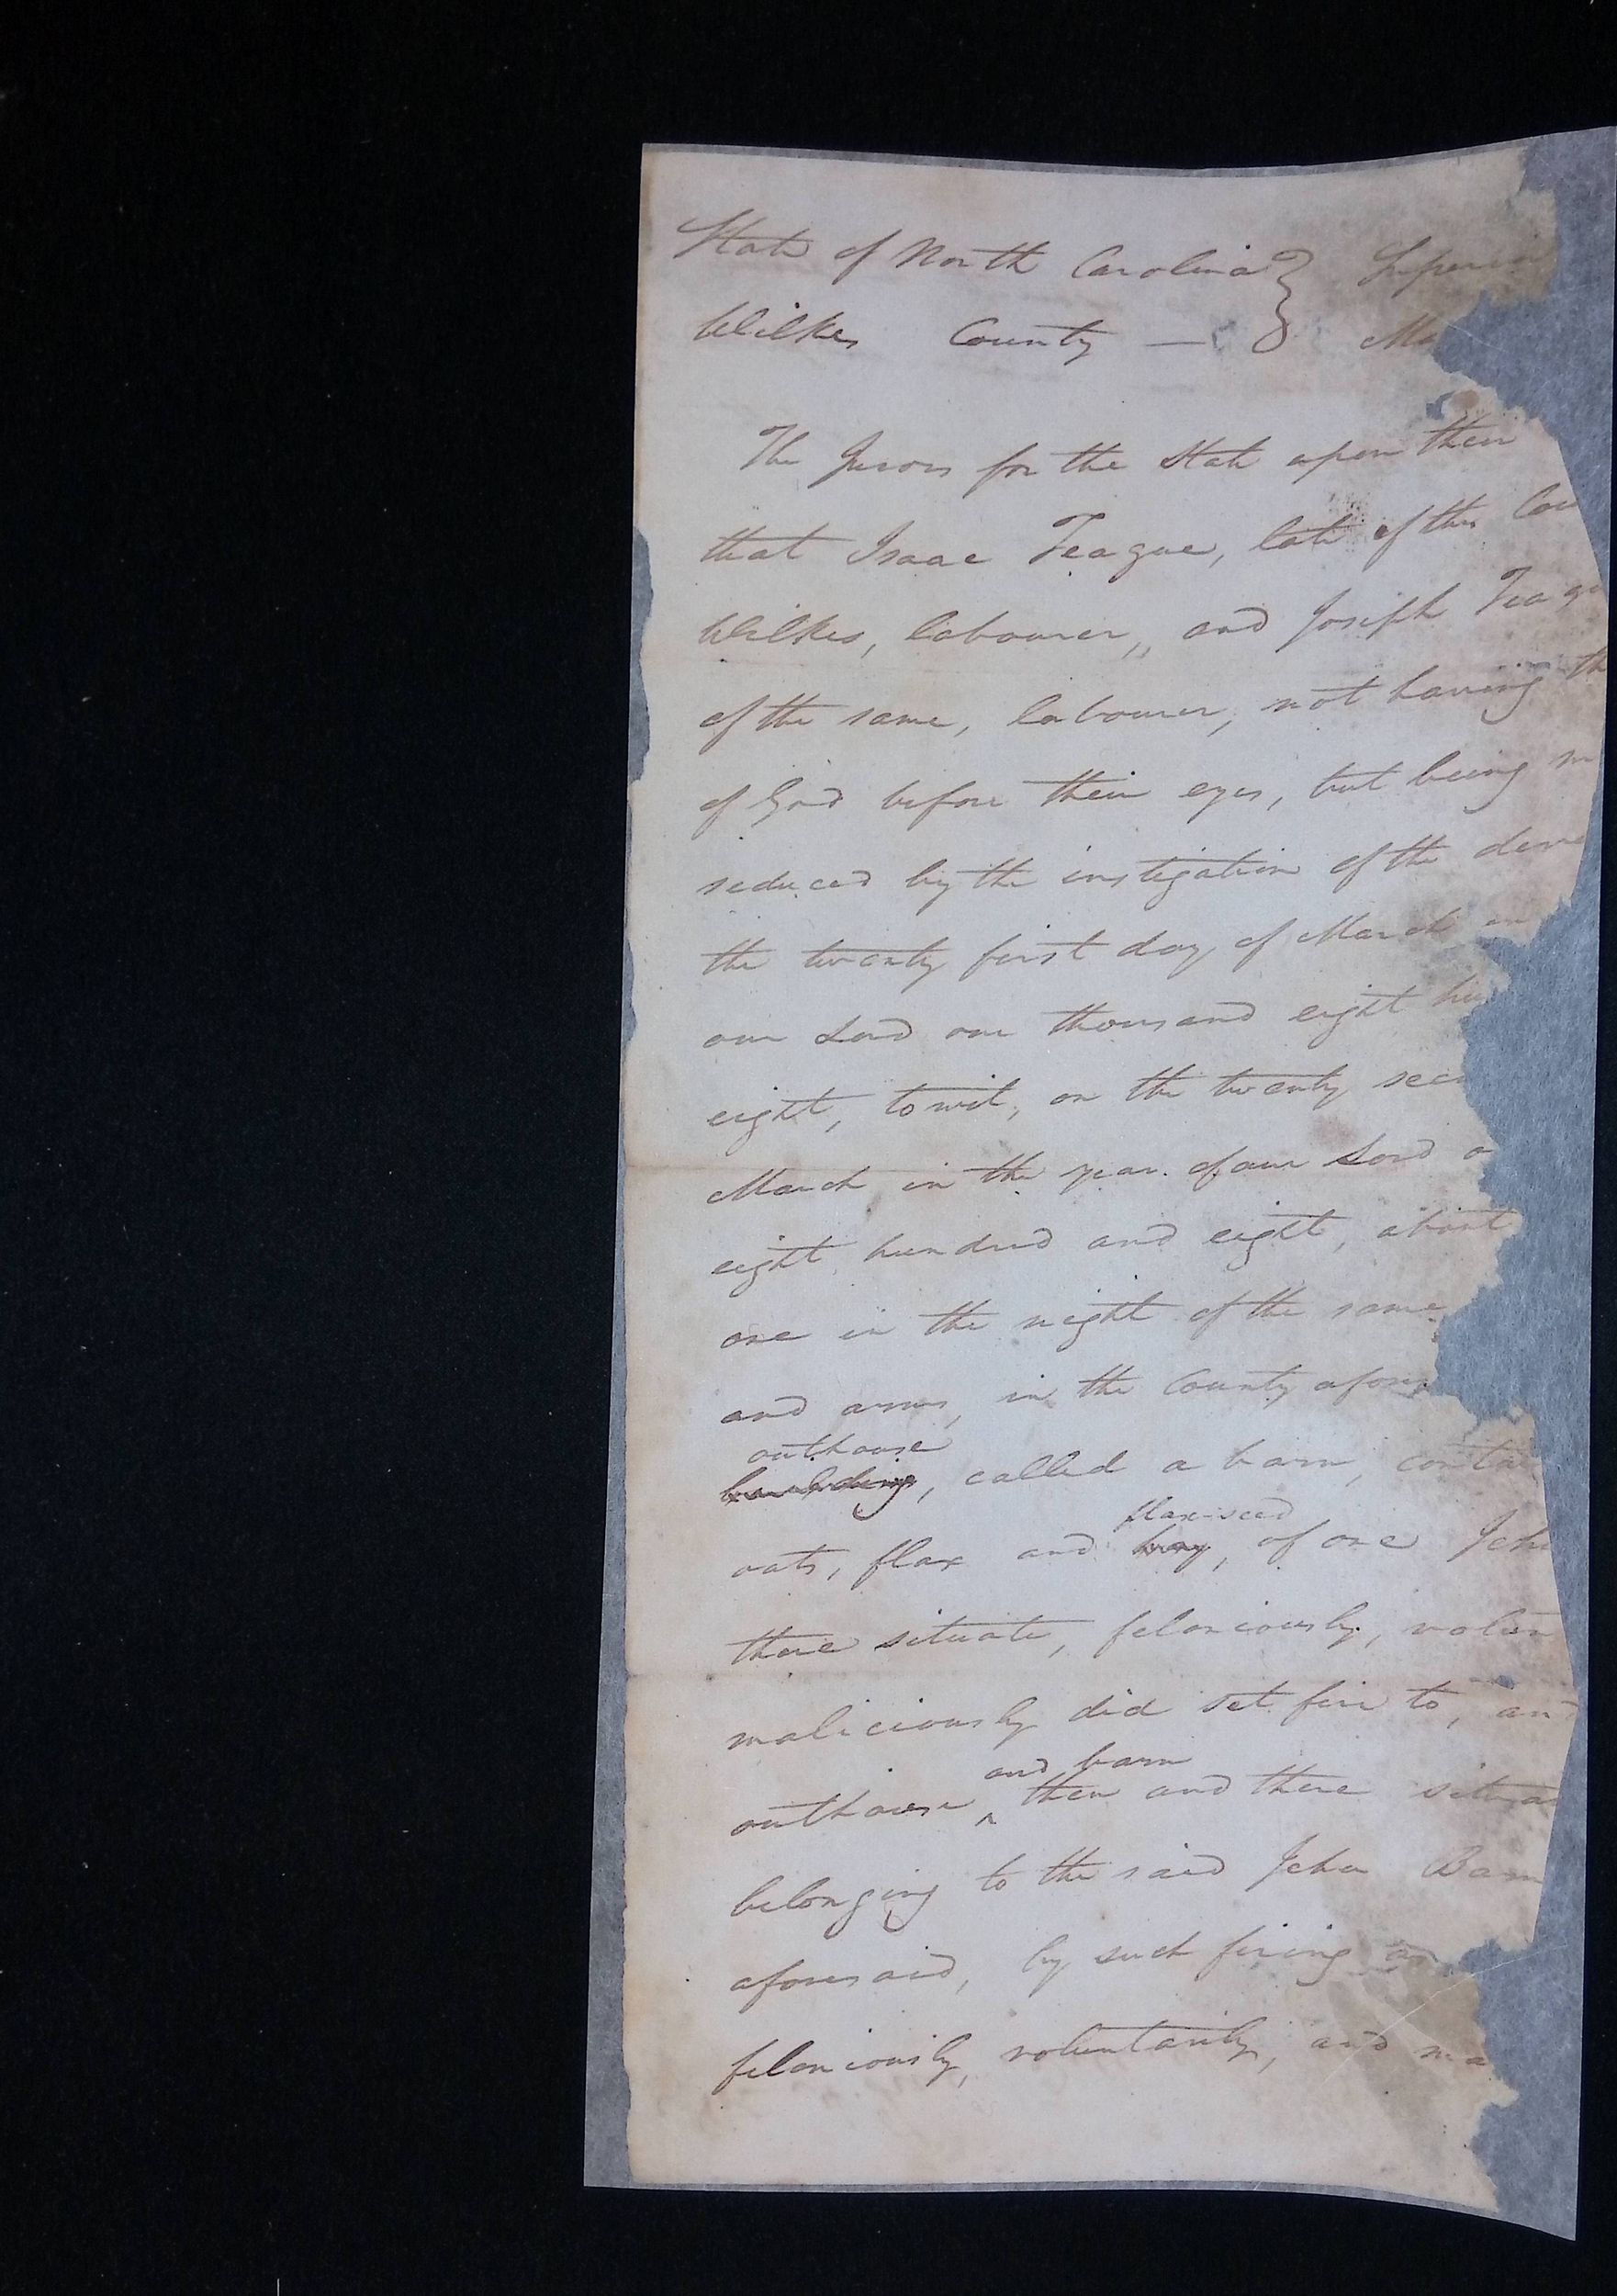 State of North Carolina } Superi
Wilkes County — } Ma
The Jurors for the State upon their
that Isaac Teague, late of the Cou
Wilkes, labourer, and Joseph Teagu
of the same, labourer, not having th
of God before their eyes, but being m
seduced by the instigation of the deve
the twenty first day of March in
our Lord one thousand eight hu
eight, to wit, on the twenty sec
March in the year of our Lord o
eight hundred and eight, about
one in the night of the same
and arms, in the County afores
outhouse
building, called a barn, contai
flax-seed
oats, flax and hay, of one Joh
there situate, feloniously, volun
maliciously did set fire to, and
and barn
outhouse ^ then and there situa
belonging to the said John Barn
aforesaid, by such firing as
feloniously, voluntarily, and ma